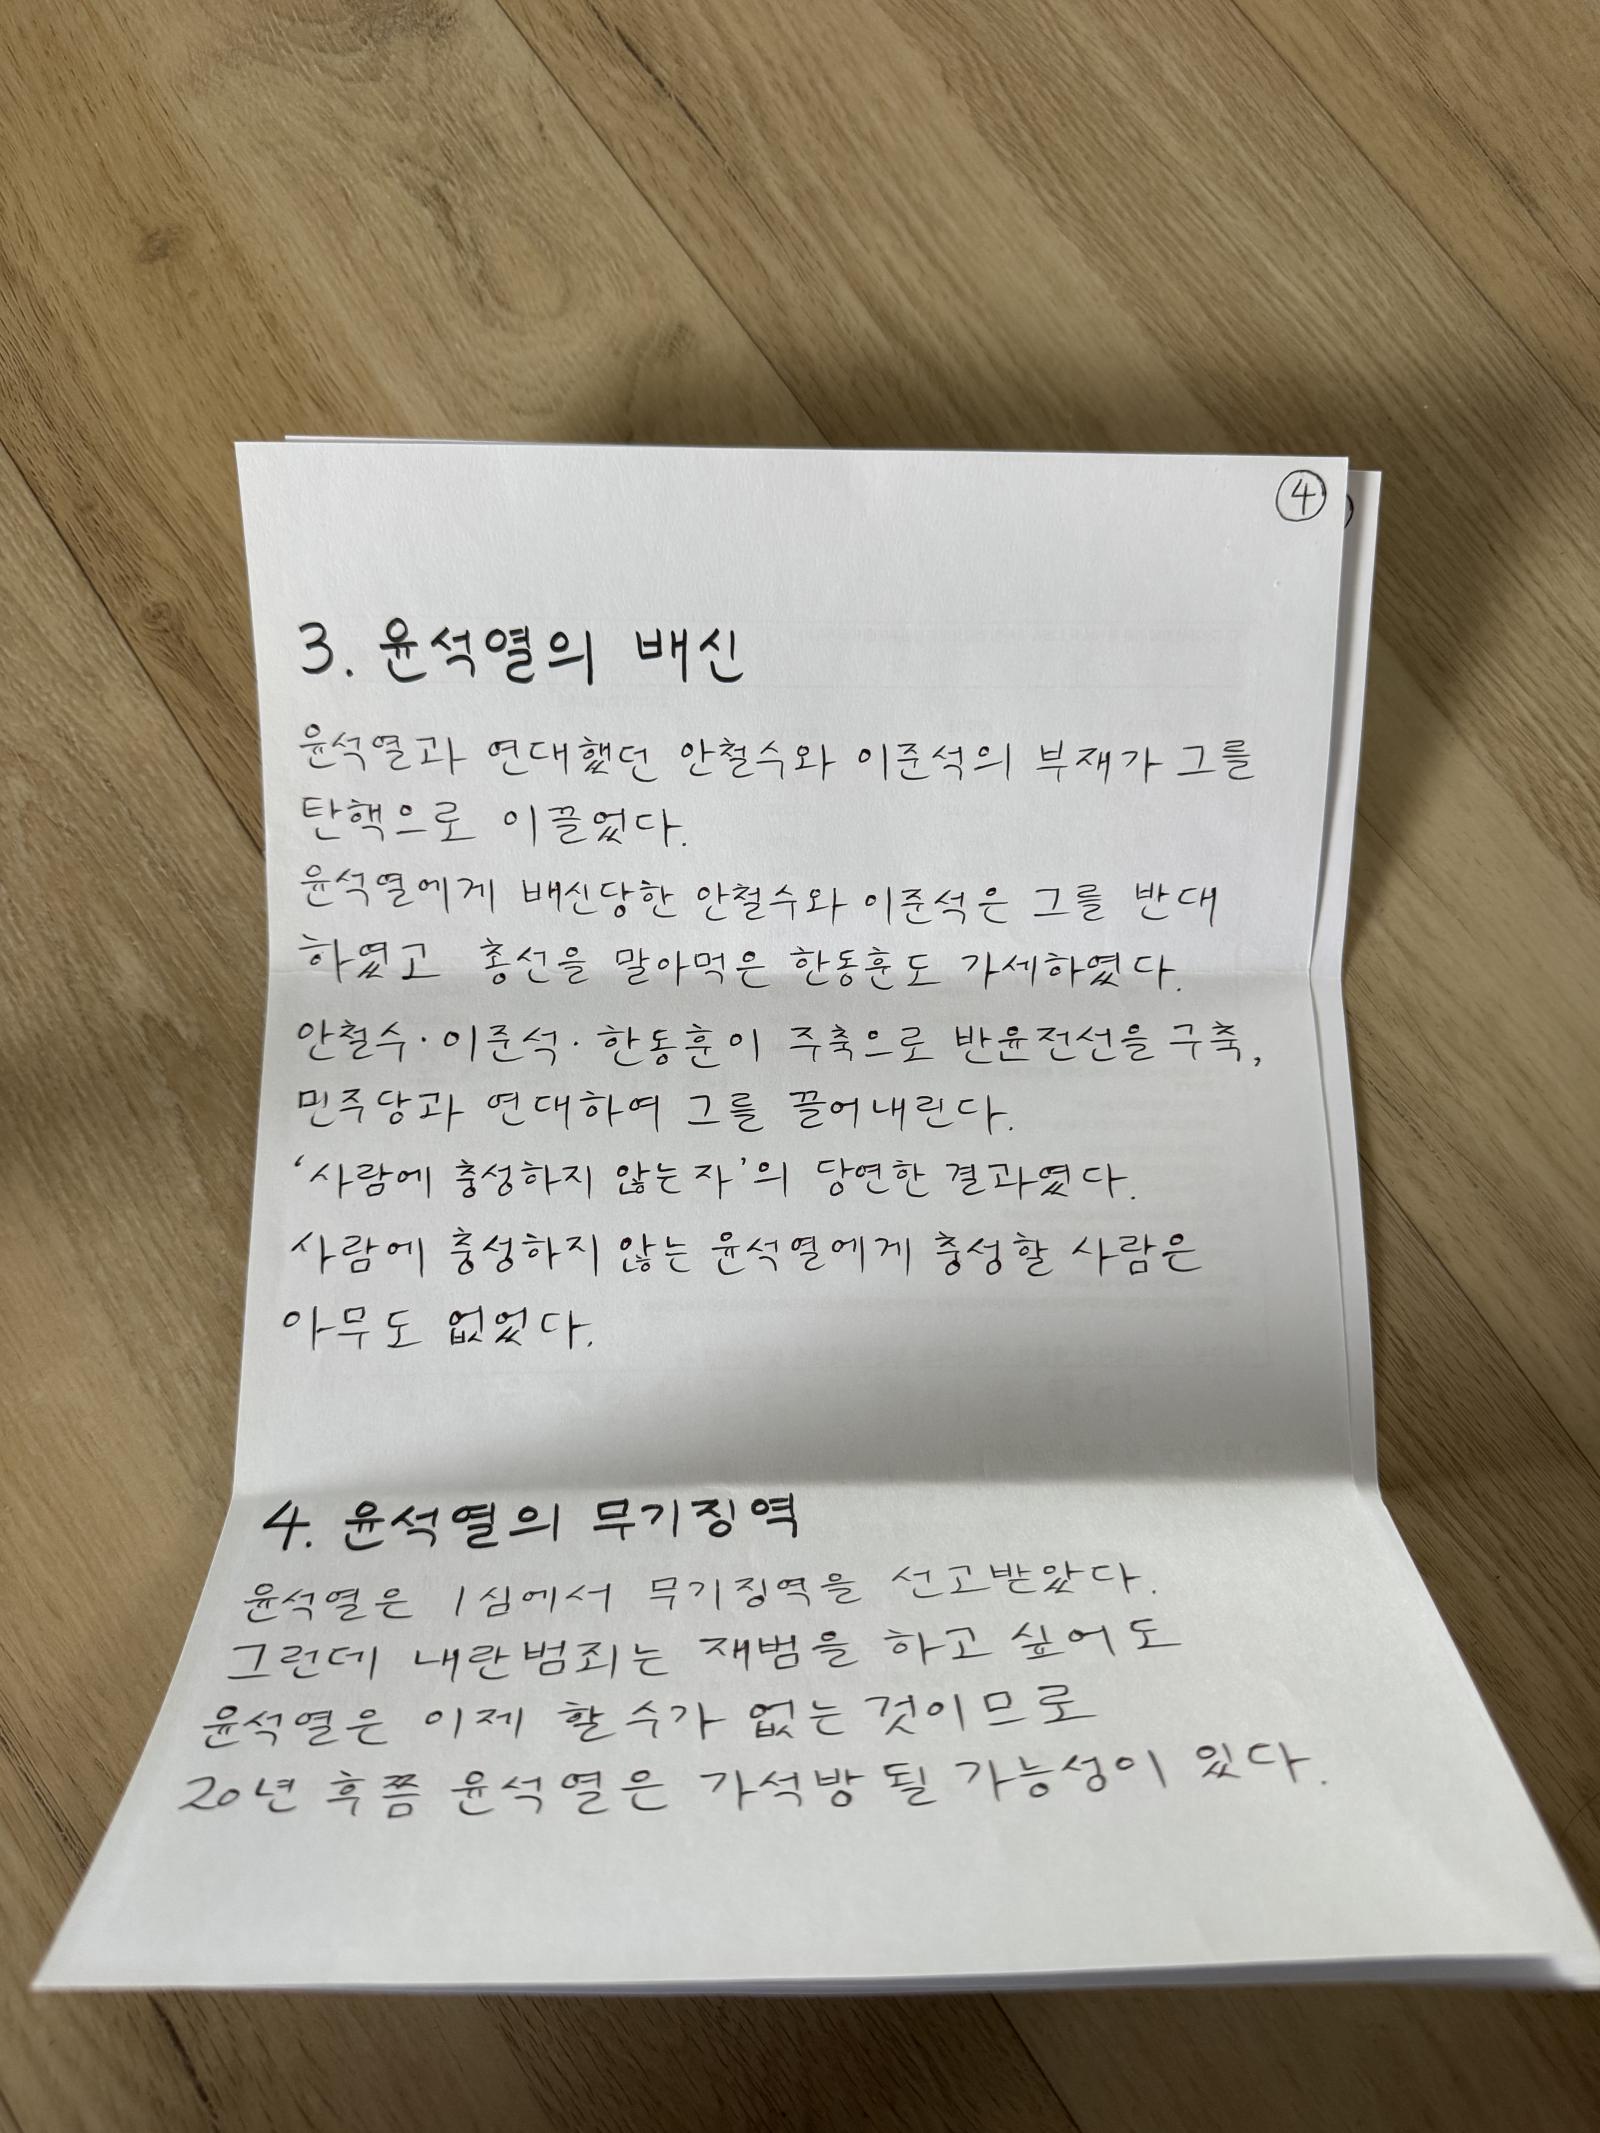 ④
3. 윤석열의 배신
윤석열과 연대했던 안철수와 이준석의 부재가 그를
탄핵으로 이끌었다.
윤석열에게 배신당한 안철수와 이준석은 그를 반대
하였고 총선을 말아먹은 한동훈도 가세하였다.
안철수·이준석·한동훈이 주축으로 반윤전선을 구축,
민주당과 연대하여 그를 끌어내린다.
‘사람에 충성하지 않는 자’의 당연한 결과였다.
사람에 충성하지 않는 윤석열에게 충성할 사람은
아무도 없었다.
4. 윤석열의 무기징역
윤석열은 1심에서 무기징역을 선고받았다.
그런데 내란범죄는 재범을 하고 싶어도
윤석열은 이제 할 수가 없는 것이므로
20년 후쯤 윤석열은 가석방 될 가능성이 있다.